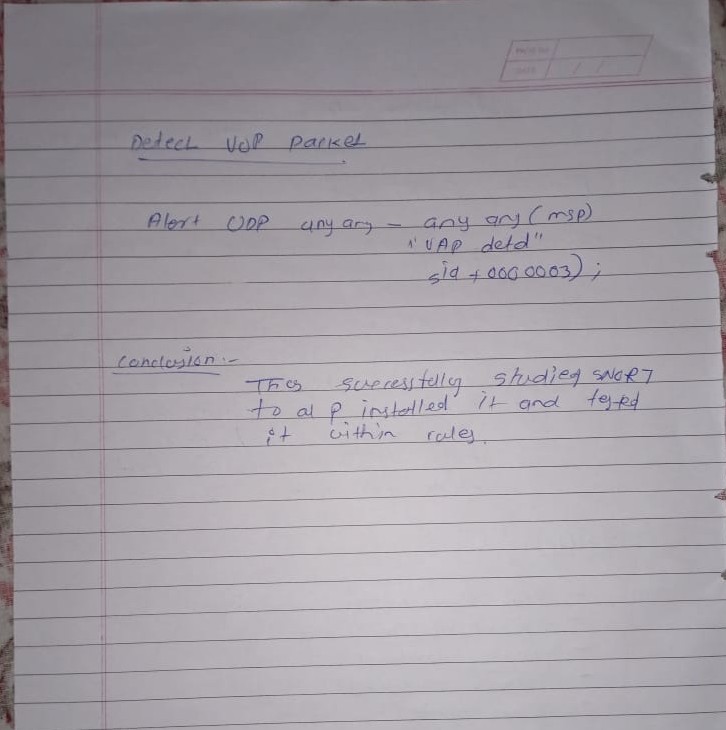 Detect UDP Packet
Alert UDP any any - any any (msp)
"UAP detd"
sid + 0000003);
Conclusion :-
Thus successfully studied SNORT
to al p installed it and tested
it within rules.